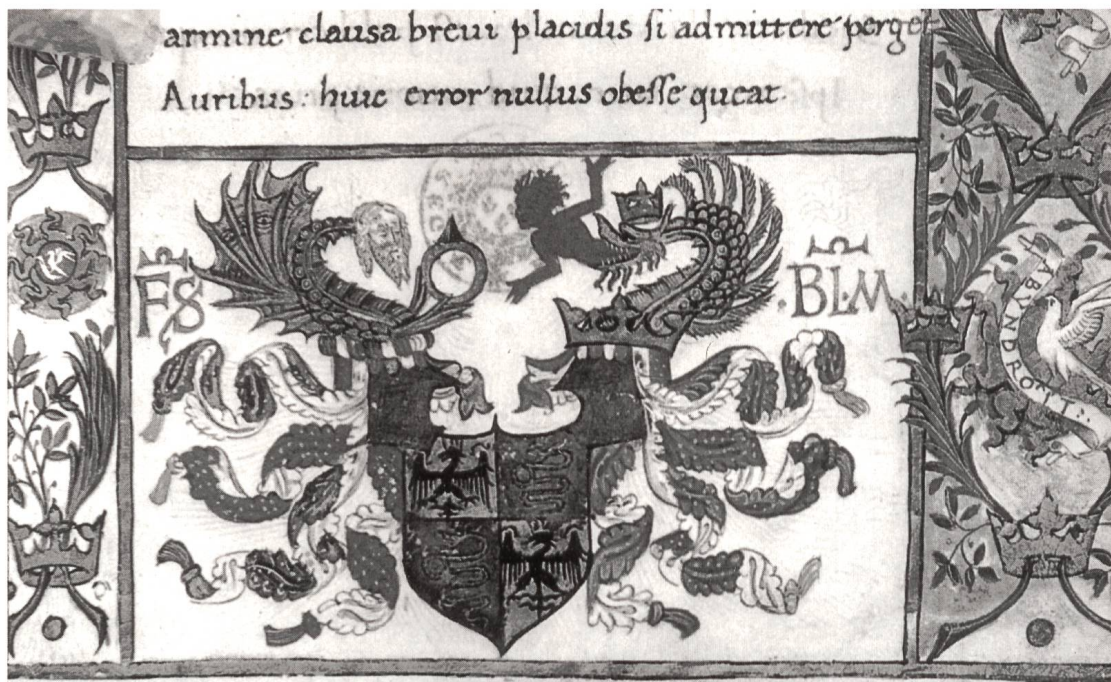 armine clausa breui placidis si admittere perget
Auribus : huic error nullus obesse queat.
FS
.BL.M.
A BVN DROIT